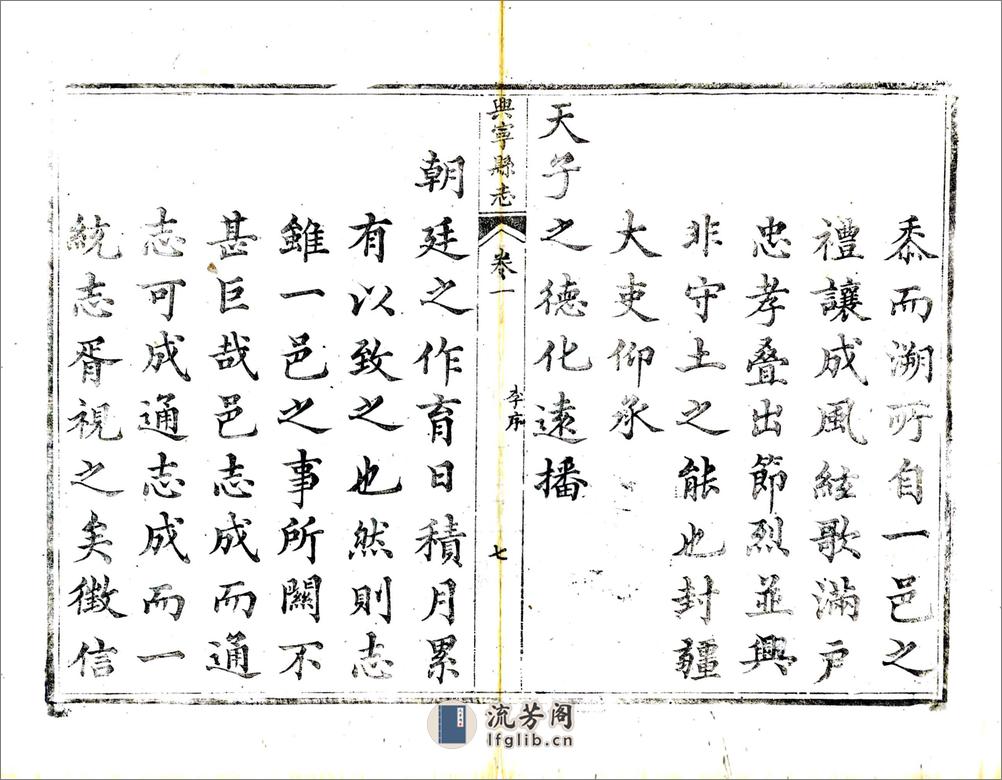 黍而溯所自一邑之
禮讓成風絃歌滿戶
忠孝叠出節烈並興
非守土之能也封疆
大吏仰承
天子之德化遠播
興寧縣志
卷一
李序
七
朝廷之作育日積月累
有以致之也然則志
雖一邑之事所關不
甚巨哉邑志成而通
志可成通志成而一
統志胥視之矣徵信
流芳阁
lfglib.cn